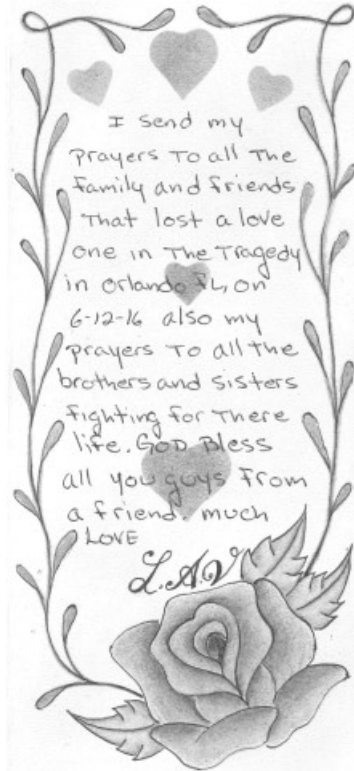 I send my
prayers to all the
family and friends
that lost a love
one in the tragedy
in Orlando FL, on
6-12-16 also my
prayers to all the
brothers and sisters
fighting for there
life. GOD Bless
all you guys from
a friend. much
LOVE
L.A.V